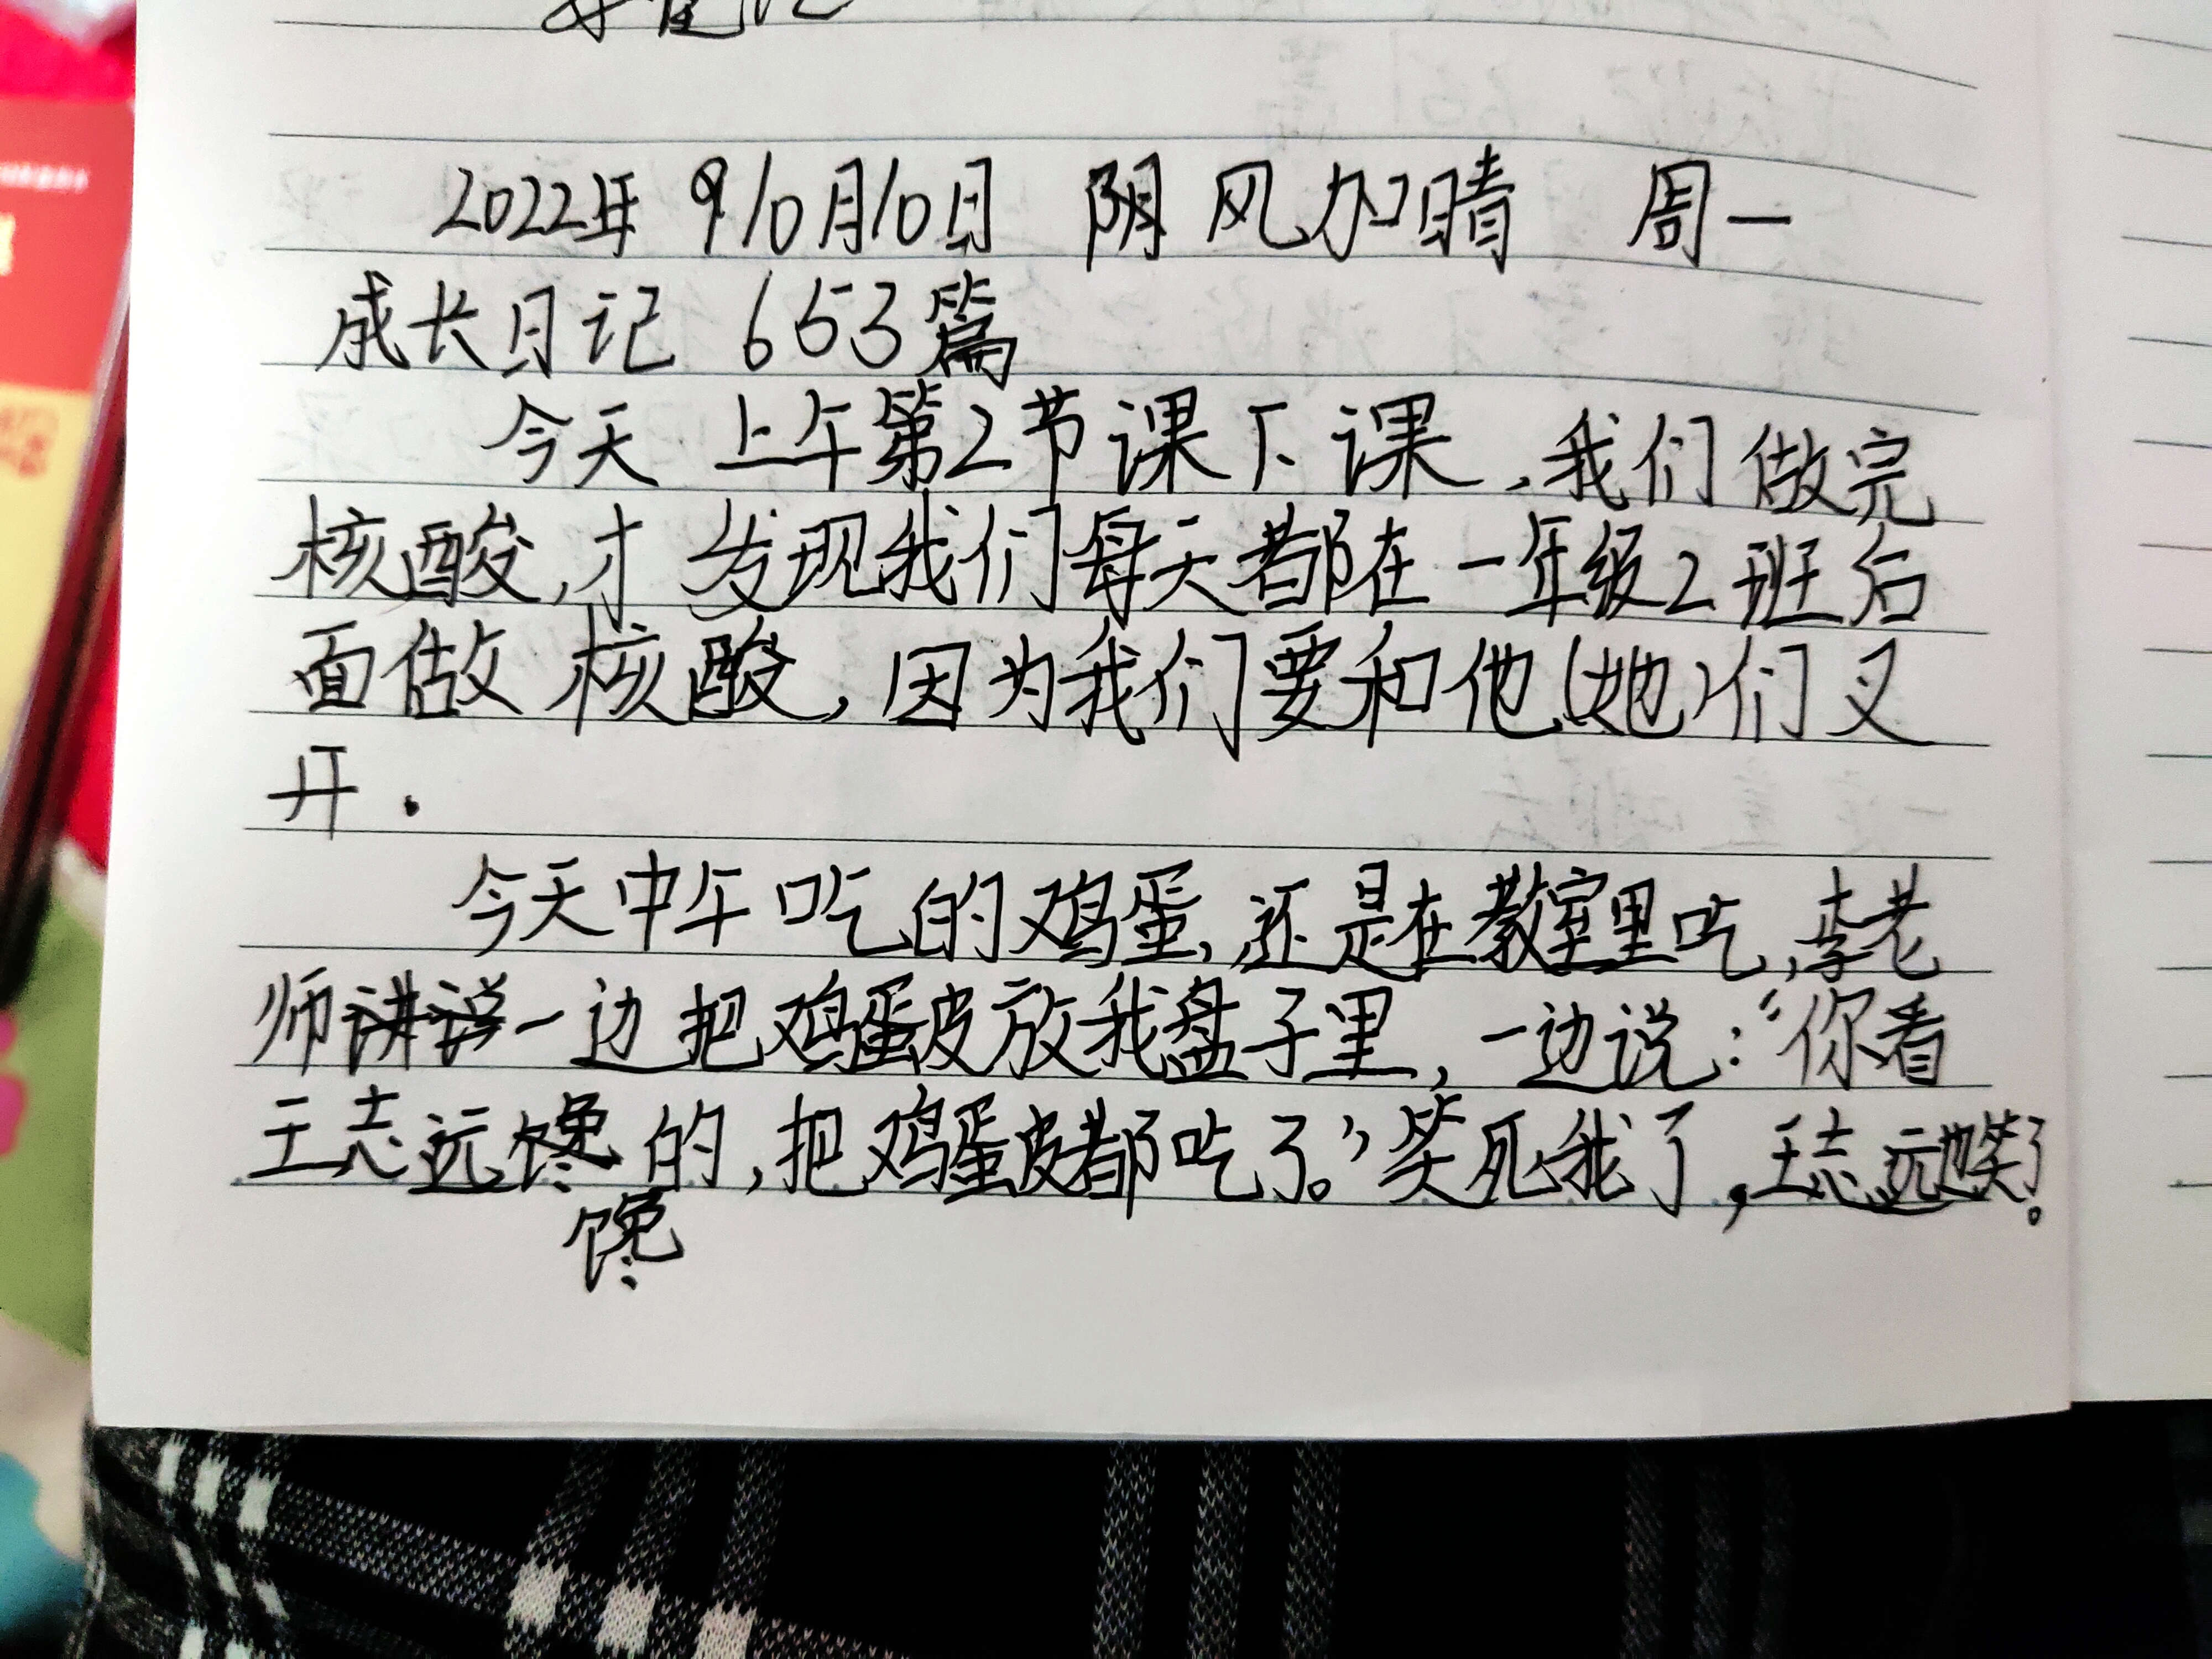 2022年 910月10日 阴 风加晴 周一
成长日记 653篇
今天 上午第2节课下课,我们做完
核酸,才发现我们每天都在一年级2班后
面做核酸,因为我们要和他(她)们叉
开.
今天中午吃的鸡蛋,还是在教室里吃,李老
师讲说一边把鸡蛋皮放我盘子里,一边说:“你看
王志远馋的,把鸡蛋皮都吃了。”笑死我了,王志远也笑了。
馋